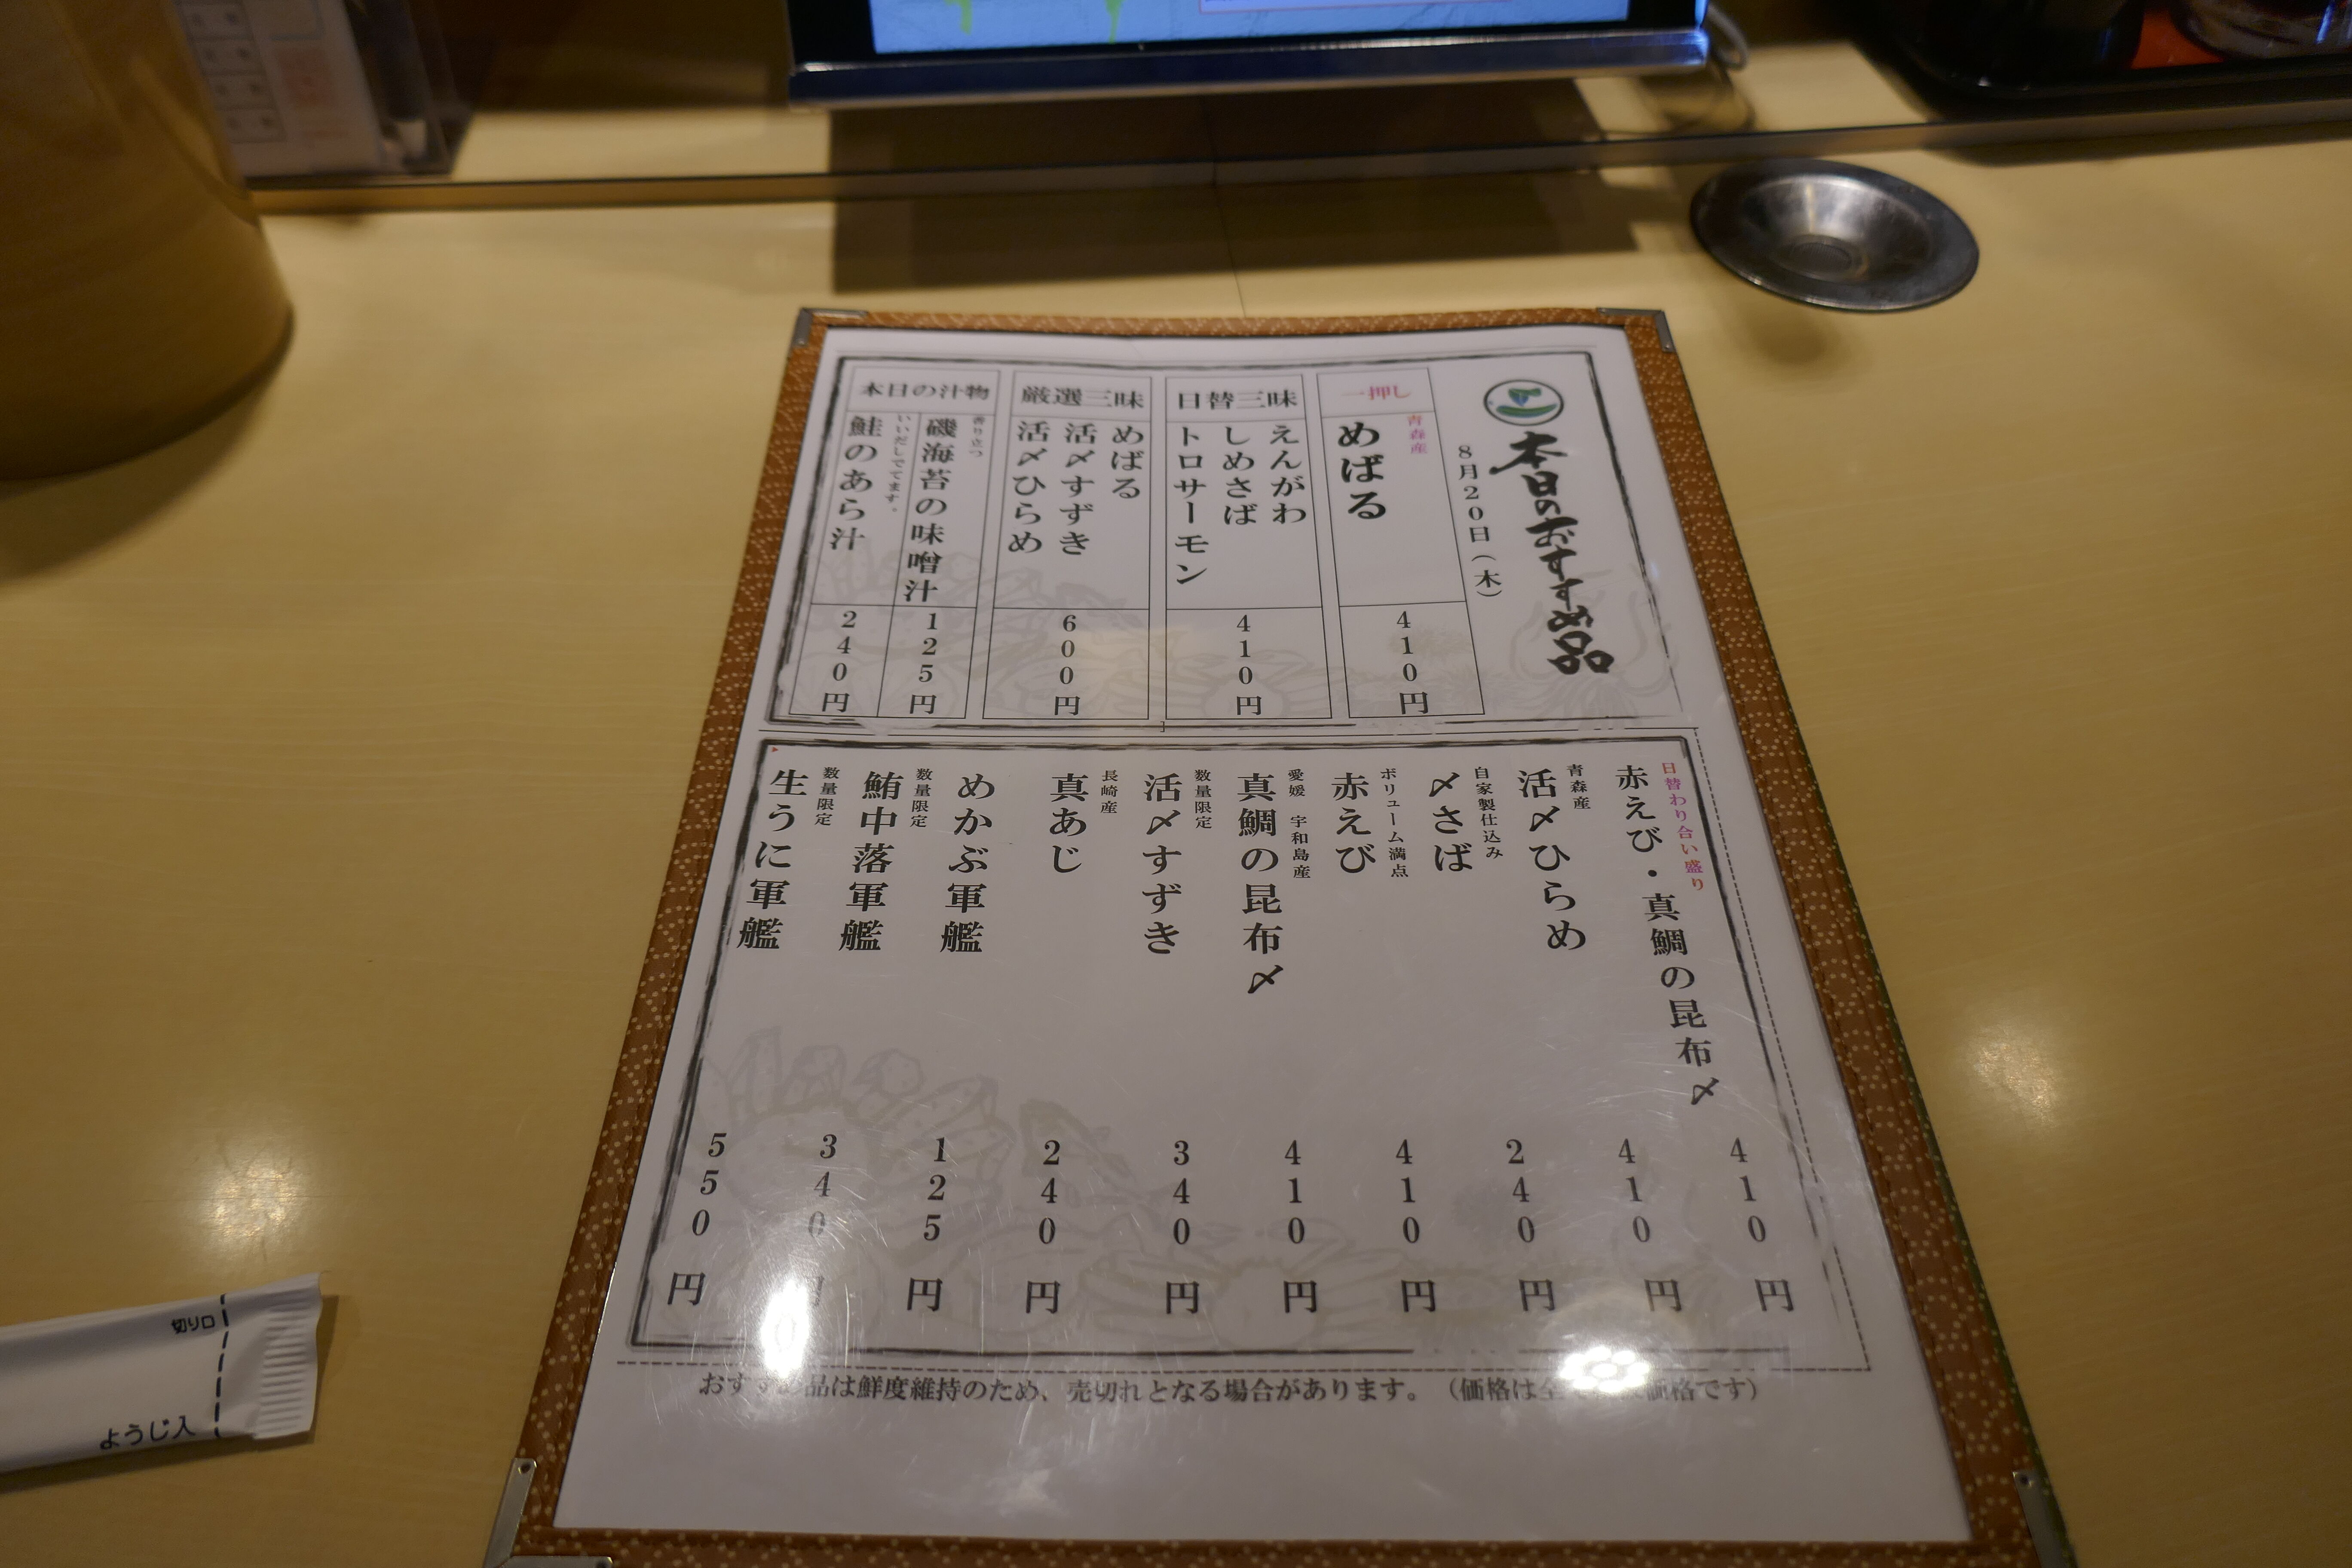 本日のおすすめ品
8月20日（木）
一押し
青森産
めばる
410円
日替三味
えんがわ
しめさば
トロサーモン
410円
厳選三味
めばる
活〆すずき
活〆ひらめ
600円
本日の汁物
香り立つ
磯海苔の味噌汁
125円
いいだしでてます。
鮭のあら汁
240円
日替わり合い盛り
赤えび・真鯛の昆布〆
410円
青森産
活〆ひらめ
410円
自家製仕込み
〆さば
240円
ボリューム満点
赤えび
410円
愛媛 宇和島産
真鯛の昆布〆
410円
数量限定
活〆すずき
340円
長崎産
真あじ
240円
めかぶ軍艦
125円
数量限定
鮪中落軍艦
340円
数量限定
生うに軍艦
550円
おすすめ品は鮮度維持のため、売切れとなる場合があります。（価格は全て 価格です）
切り口
ようじ入